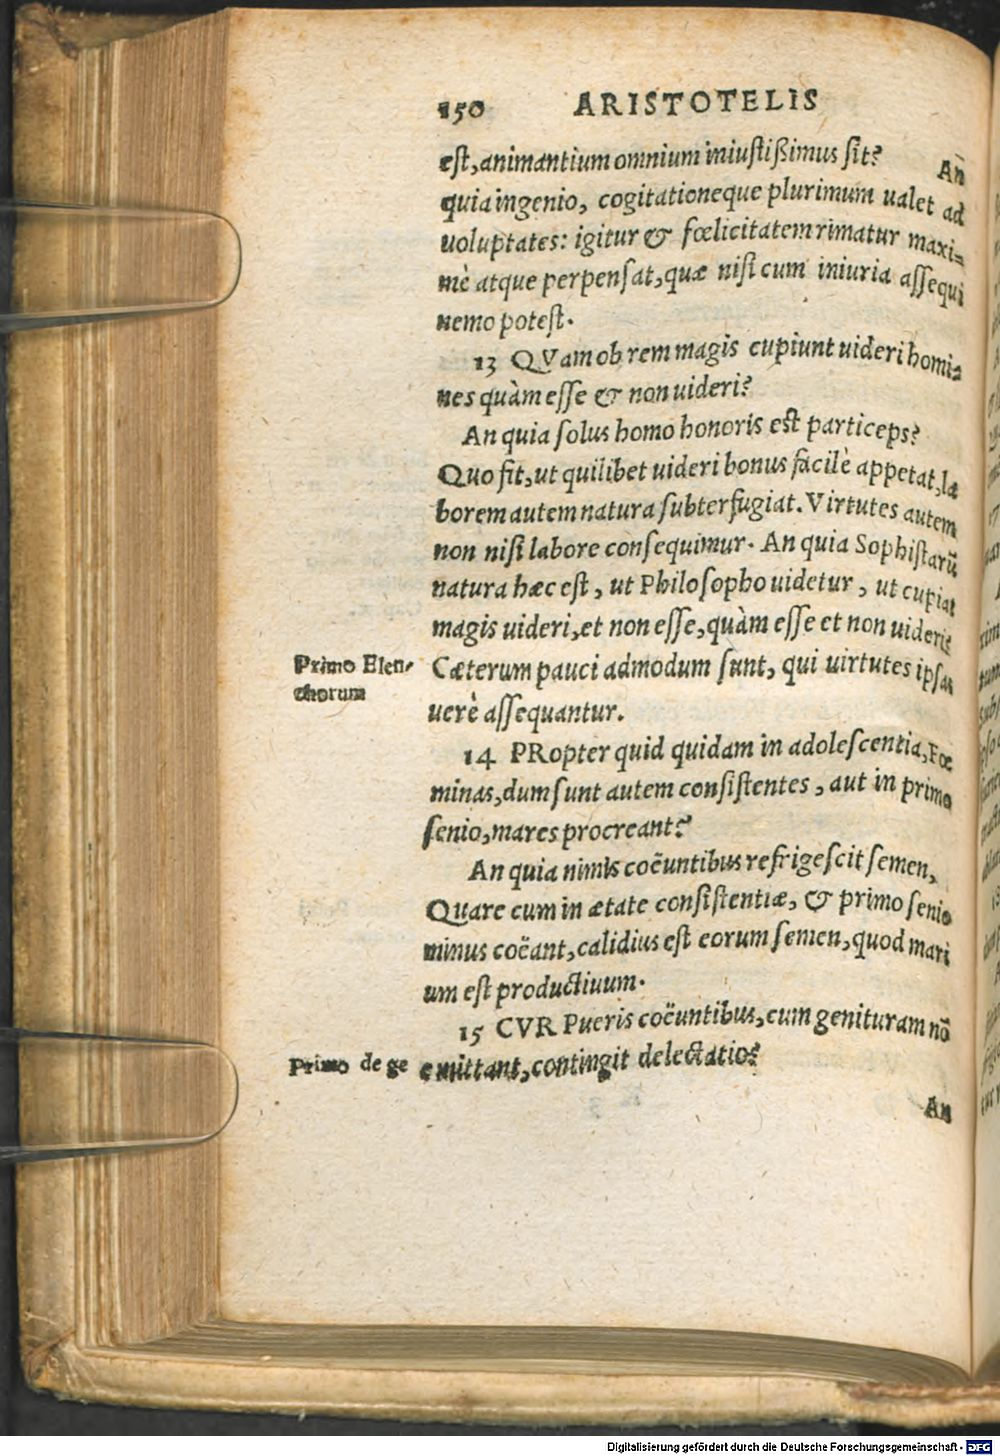 150 ARISTOTELIS
est, animantium omnium iniustißimus sit? An̄
quia ingenio, cogitationeque plurimum ualet ad
uoluptates: igitur & fœlicitatem rimatur maxi=
mè atque perpensat, quæ nisi cum iniuria assequi
nemo potest.
13 QVam ob rem magis cupiunt uideri homi=
nes quàm esse & non uideri?
An quia solus homo honoris est particeps?
Quo fit, ut quilibet uideri bonus facilè appetat, la
borem autem natura subterfugiat. Virtutes autem
non nisi labore consequimur. An quia Sophistarū
natura hæc est, ut Philosopho uidetur, ut cupiat
magis uideri, et non esse, quàm esse et non uideri?
Primo Elen-
chorum
Cæterum pauci admodum sunt, qui uirtutes ipsas
uerè assequantur.
14 PRopter quid quidam in adolescentia, Fœ
minas, dum sunt autem consistentes, aut in primo
senio, mares procreant?
An quia nimis coëuntibus refrigescit semen,
Quare cum in ætate consistentiæ, & primo senio
minus coëant, calidius est eorum semen, quod mari
um est productiuum.
15 CVR Pueris coëuntibus, cum genituram nō
Primo de ge
emittant, contingit delectatio?
An
Digitalisierung gefördert durch die Deutsche Forschungsgemeinschaft - DFG